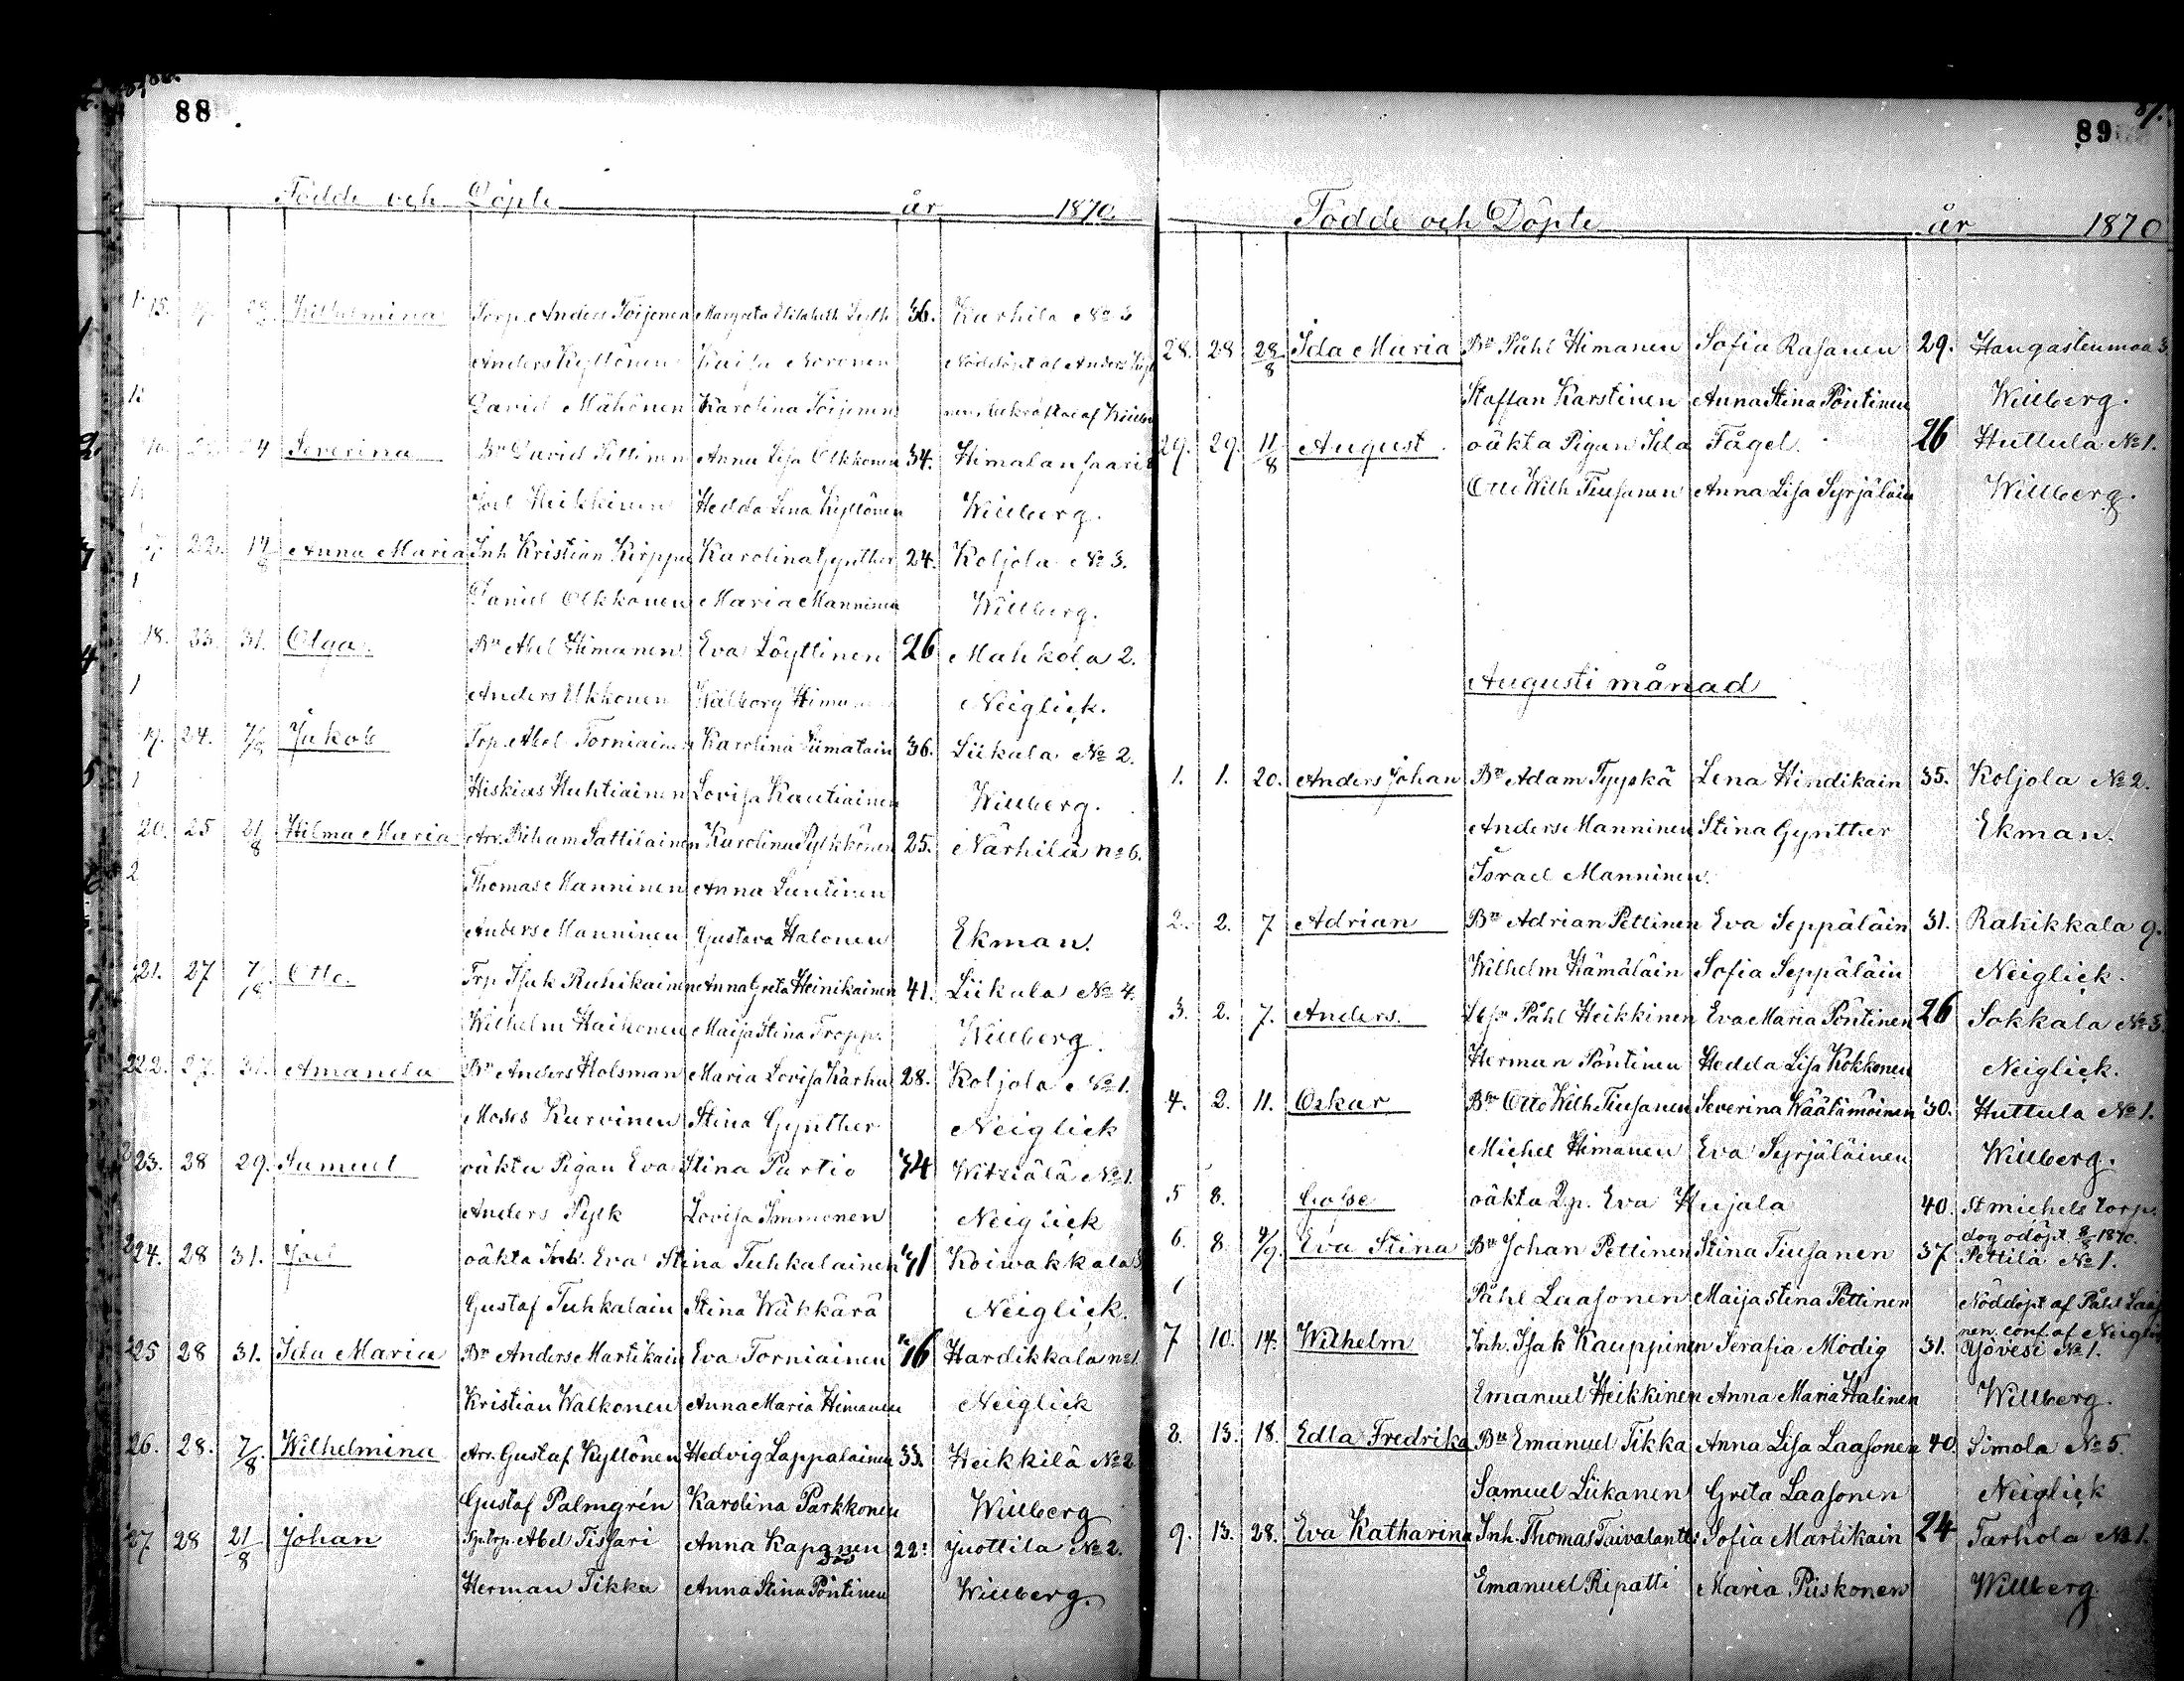 88
Födde och Döpte år 1870.
15. Wilhelmina Torp. Anders Toijonen Margreta Elisabeth 36. Karhila No 3
Anders Kyllönen Kaisa Noronen Nöddöpt af Anders
David Mähönen Karolina Toijonen bekräftad af
24 Severina Bn David Pettinen Anna Lisa Olkkonen 34. Himalansaari
Joel Heikkinen Hedda Lena Kyllönen Willberg.
22. 17/8 Anna Maria Inh Kristian Kirppu Karolina Gynther 24. Koljola No 3.
Daniel Olkkonen Maria Manninen Willberg.
18. 23. 31. Olga. Bn Abel Himanen Eva Löyttinen 26 Mahkola 2.
Anders Ukkonen Walborg Neiglick.
19. 24. 7/8 Jakob Trp. Abel Torniainen Karolina Siimalain 36. Liikala No 2.
Hiskias Huhtiainen Lovisa Kautiainen Willberg.
20. 25 21/8 Hilma Maria Arr. Sattilainen Karolina Pylkkönen 25. Närhilä no 6.
Thomas Manninen Anna Luntinen
Anders Manninen Gustava Halonen Ekman.
21. 27 7/8 Otto. Trp Isak Ruhikainen Anna Greta Heinikainen 41. Liikala No 4.
Wilhelm Haikonen Maija Stina Tropp. Willberg.
22. 27. 31. Amanda Bn Anders Holsman Maria Lovisa Karhu 28. Koljola No 1.
Moses Kurvinen Stina Gynther Neiglick
23. 28 29. Samuel oäkta Pigan Eva Stina Partio 34 Witsiälä No 1.
Anders Pylk Lovisa Immonen Neiglick
24. 28 31. Joel oäkta Inh. Eva Stina Tuhkalainen 31 Koiwakkala 3
Gustaf Tuhkalain Stina Wäkkärä Neiglick.
25 28 31. Ida Maria Bn Anders Martikain Eva Torniainen 46 Hardikkala no 1.
Kristian Walkonen Anna Maria Himanen Neiglick
26. 28. 7/8. Wilhelmina Arr. Gustaf Kyllönen Hedvig Lappalainen 33. Heikkilä No 2
Gustaf Palmgrén Karolina Parkkonen Willberg
27 28 21/8 Johan Sp. torp. Abel Tissari Anna Kapanen 22. Juottila No 2.
Herman Tikka Anna Stina Pöntinen Willberg.
89
Födde och Döpte år 1870
28. 28 28/8 Ida Maria Bn Påhl Himanen Sofia Rasanen 29. Hangastenmaa 3
Staffan Karstinen Anna Stina Pöntinen Willberg.
29. 29. 11/8 August. oäkta Pigan Ida Fågel. 26 Huttula No 1.
Otto Wilh Tiusanen Anna Lisa Syrjäläin Willberg.
Augusti månad
1. 1. 20. Anders Johan Bn Adam Tyyskä Lena Hindikain 35. Koljola No 2.
Anders Manninen Stina Gynther Ekman.
Israel Manninen.
2. 2. 7 Adrian Bn Adrian Pettinen Eva Seppäläin 31. Rahikkala 9.
Wilhelm Hämäläin Sofia Seppäläin Neiglick.
3. 2. 7. Anders. Påhl Heikkinen Eva Maria Pöntinen 26 Sokkala No 3
Herman Pöntinen Hedda Lisa Kokkonen Neiglick.
4. 2. 11. Oskar Bn Otto Wilh. Tiusanen Severina Wäätämöinen 30. Huttula No 1.
Michel Himanen Eva Syrjäläinen Willberg.
5 8. Gosse oäkta Qp. Eva Kujala 40. St michels torp.
dog odöpt 8/8 1870.
6. 8 4/9. Eva Stina Bn Johan Pettinen Stina Tiusanen 37 Pettilä No 1.
Påhl Laasonen Maija Stina Pettinen Nöddöpt af Påhl Laaso
nen conf. af Neiglick
7 10. 14. Wilhelm Inh. Isak Kauppinen Serafia Modig 31. Yövesi No 1.
Emanuel Heikkinen Anna Maria Halinen Willberg.
8. 13. 18. Edla Fredrika Bn Emanuel Tikka Anna Lisa Laasonen 40. Simola No 5.
Samuel Liikanen Greta Laasonen Neiglick
9. 13. 28. Eva Katharina Inh. Thomas Taivalantti Sofia Martikain 24 Tarhola No 1.
Emanuel Ripatti Maria Piiskonen Willberg